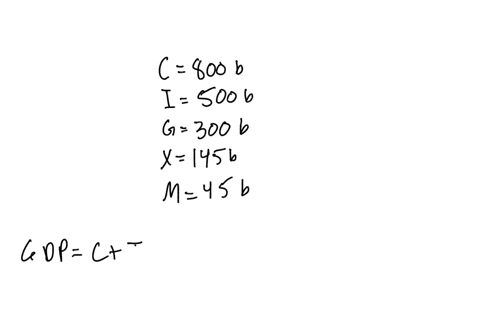 C = 800 b
I = 500 b
G = 300 b
X = 145 b
M = 45 b
GDP = C +